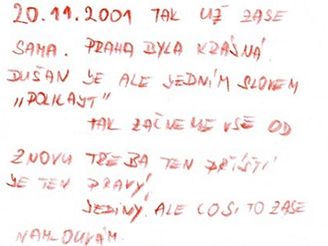 20.11.2001 TAK UŽ ZASE
SAMA. PRAHA BYLA KRÁSNÁ.
DUŠAN JE ALE JEDNÍM SLOVEM
„POLKAUT"
TAK ZAČNEME VŠE OD
ZNOVU TŘEBA TEN PŘÍŠTÍ
JE TEN PRAVÝ.
JEDINÝ. ALE COSI TO ZASE
NAMLOUVÁM.